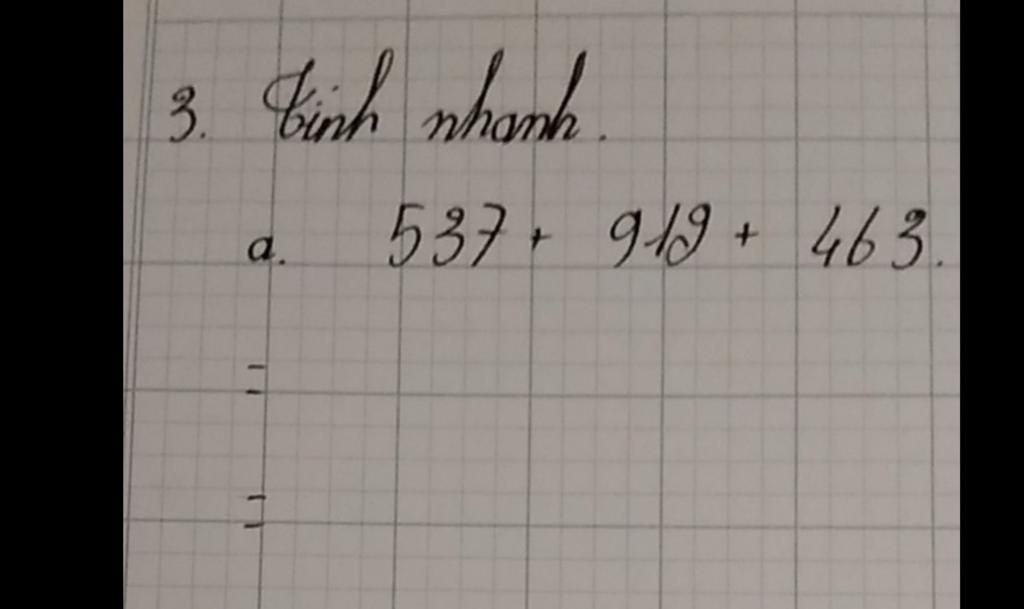 3. Tính nhanh.
a. 537 + 919 + 463.
=
=